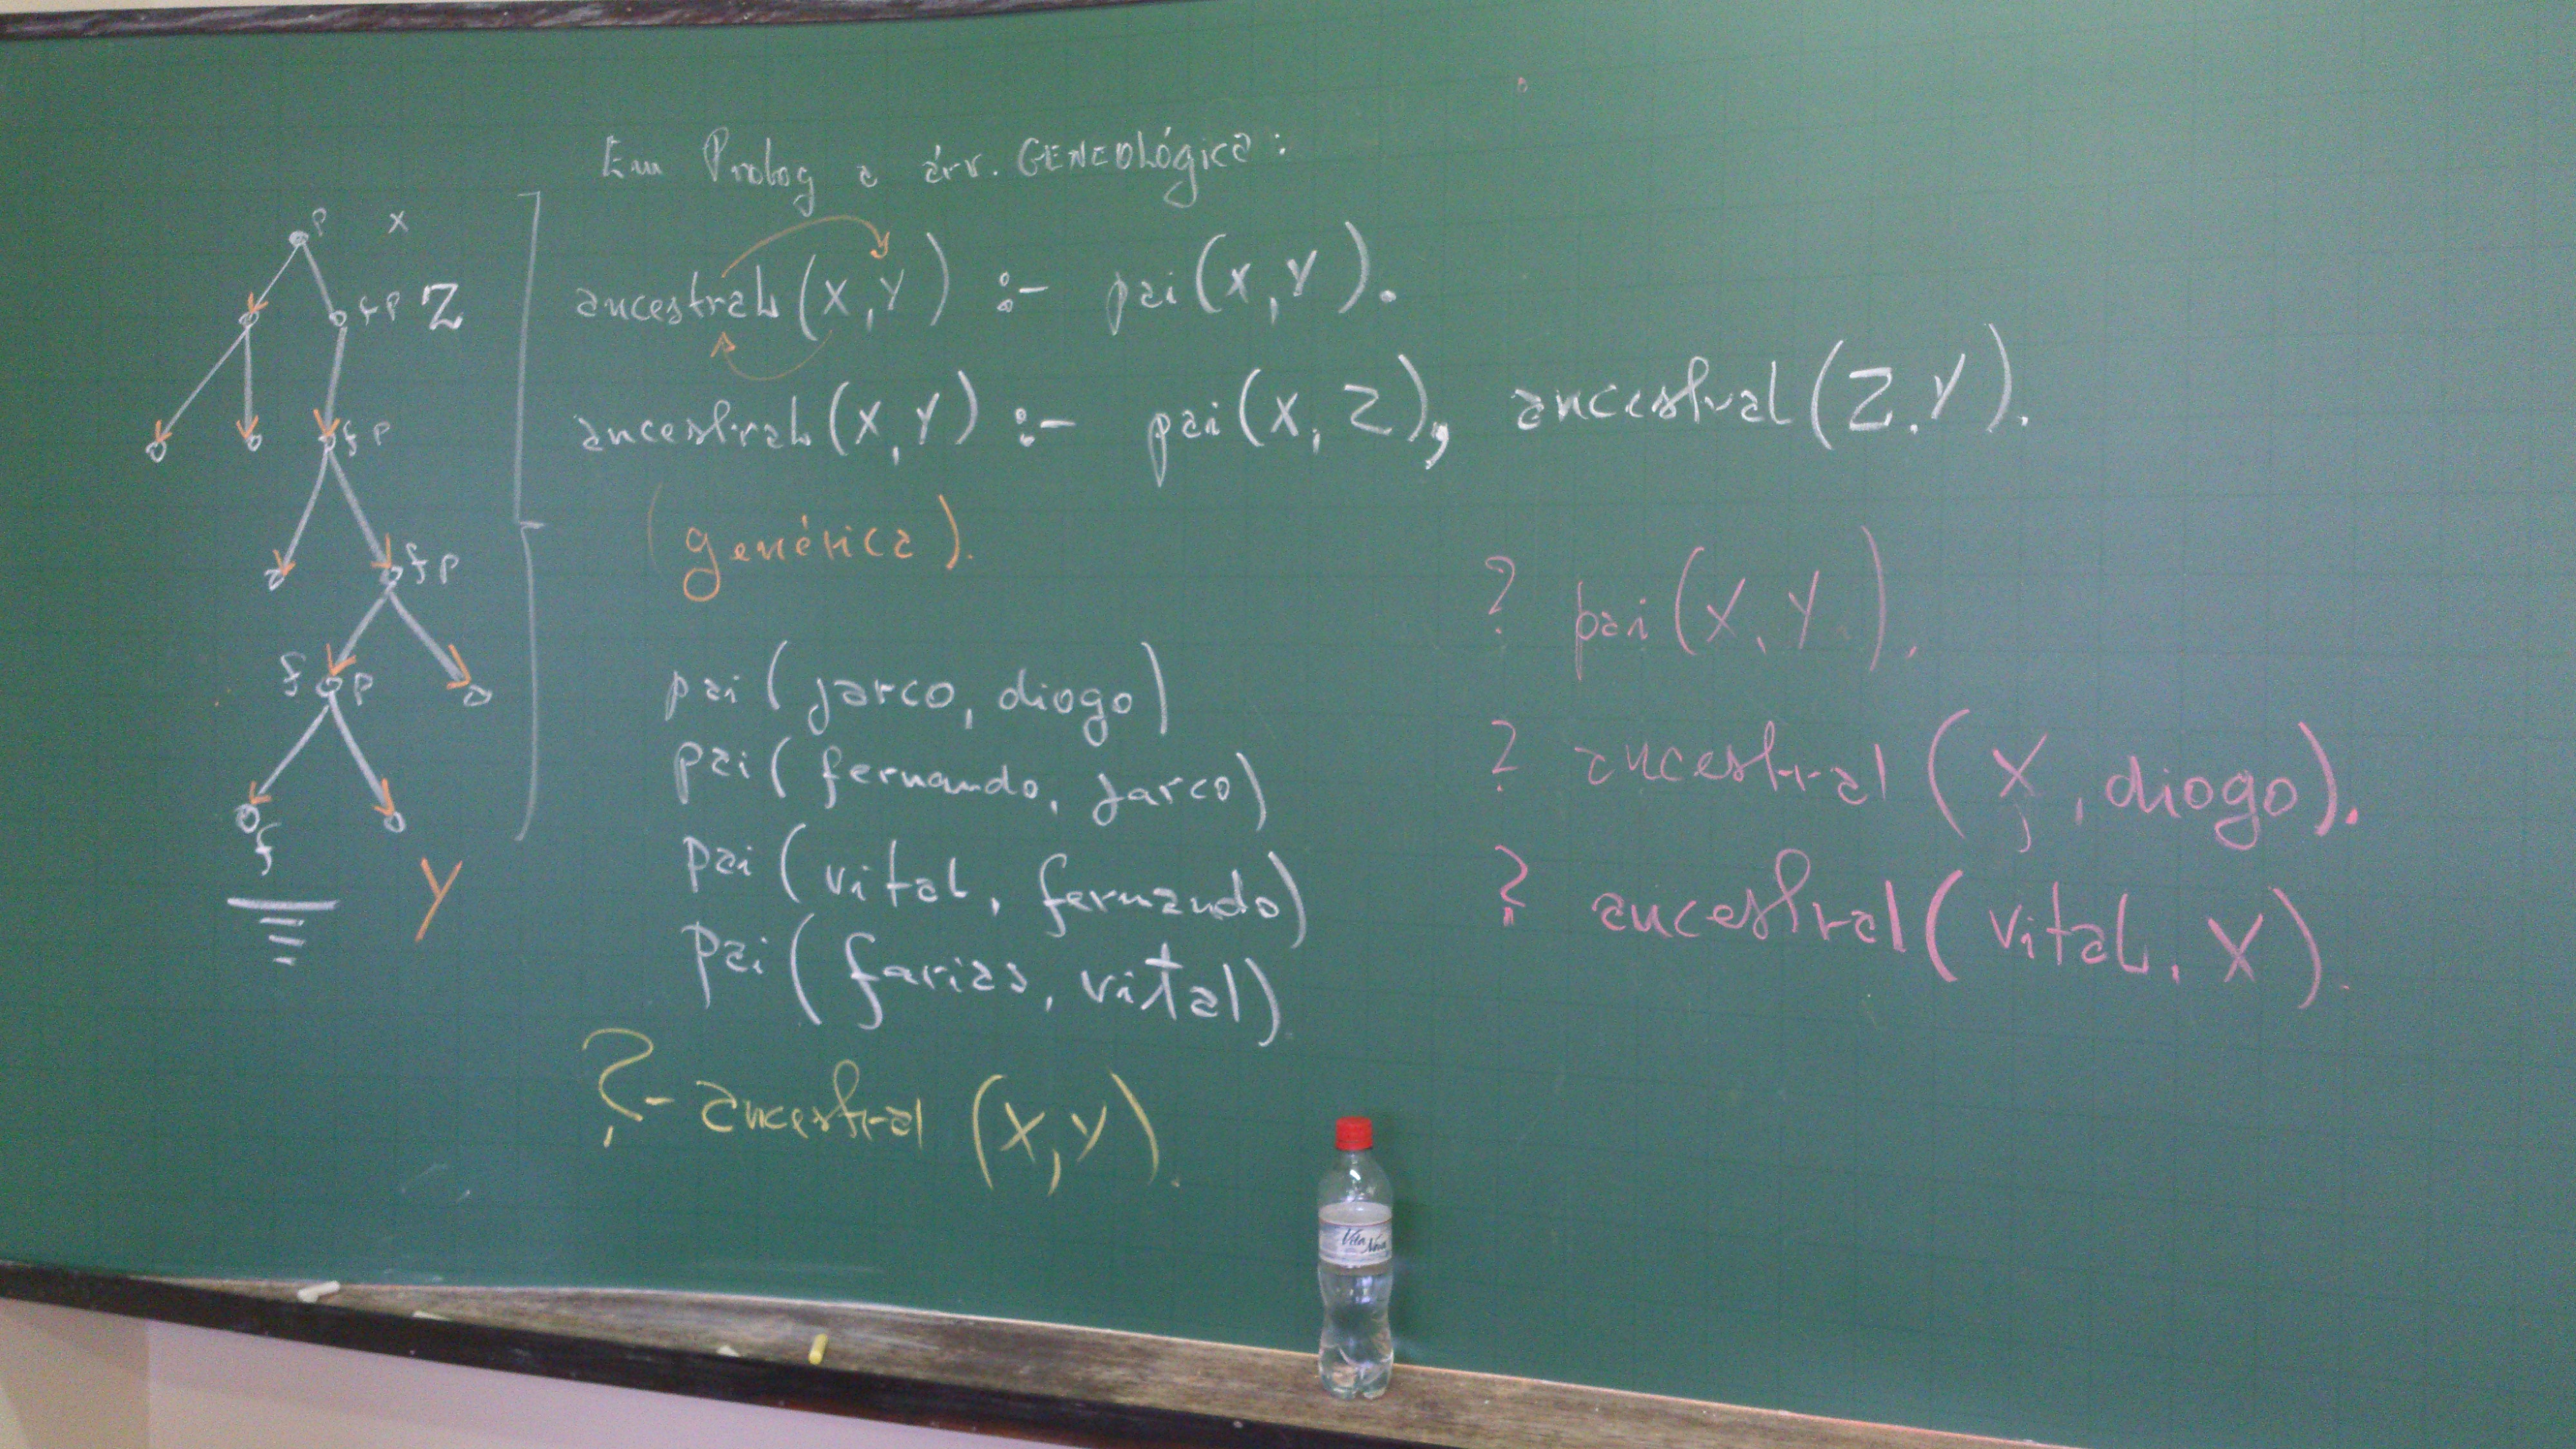 Em Prolog a árv. GENEOLÓGICA:
ancestral(X,Y) :- pai(X,Y).
ancestral(X,Y) :- pai(X,Z), ancestral(Z,Y).
(genérica).
pai(jarco, diogo)
pai(fernando, jarco)
pai(vital, fernando)
pai(farias, vital)
?- ancestral(X,Y).
? pai(X,Y).
? ancestral(X, diogo).
? ancestral(vital, X).
P X
f P Z
f P
f P
f P
f
Y
Vita Nova